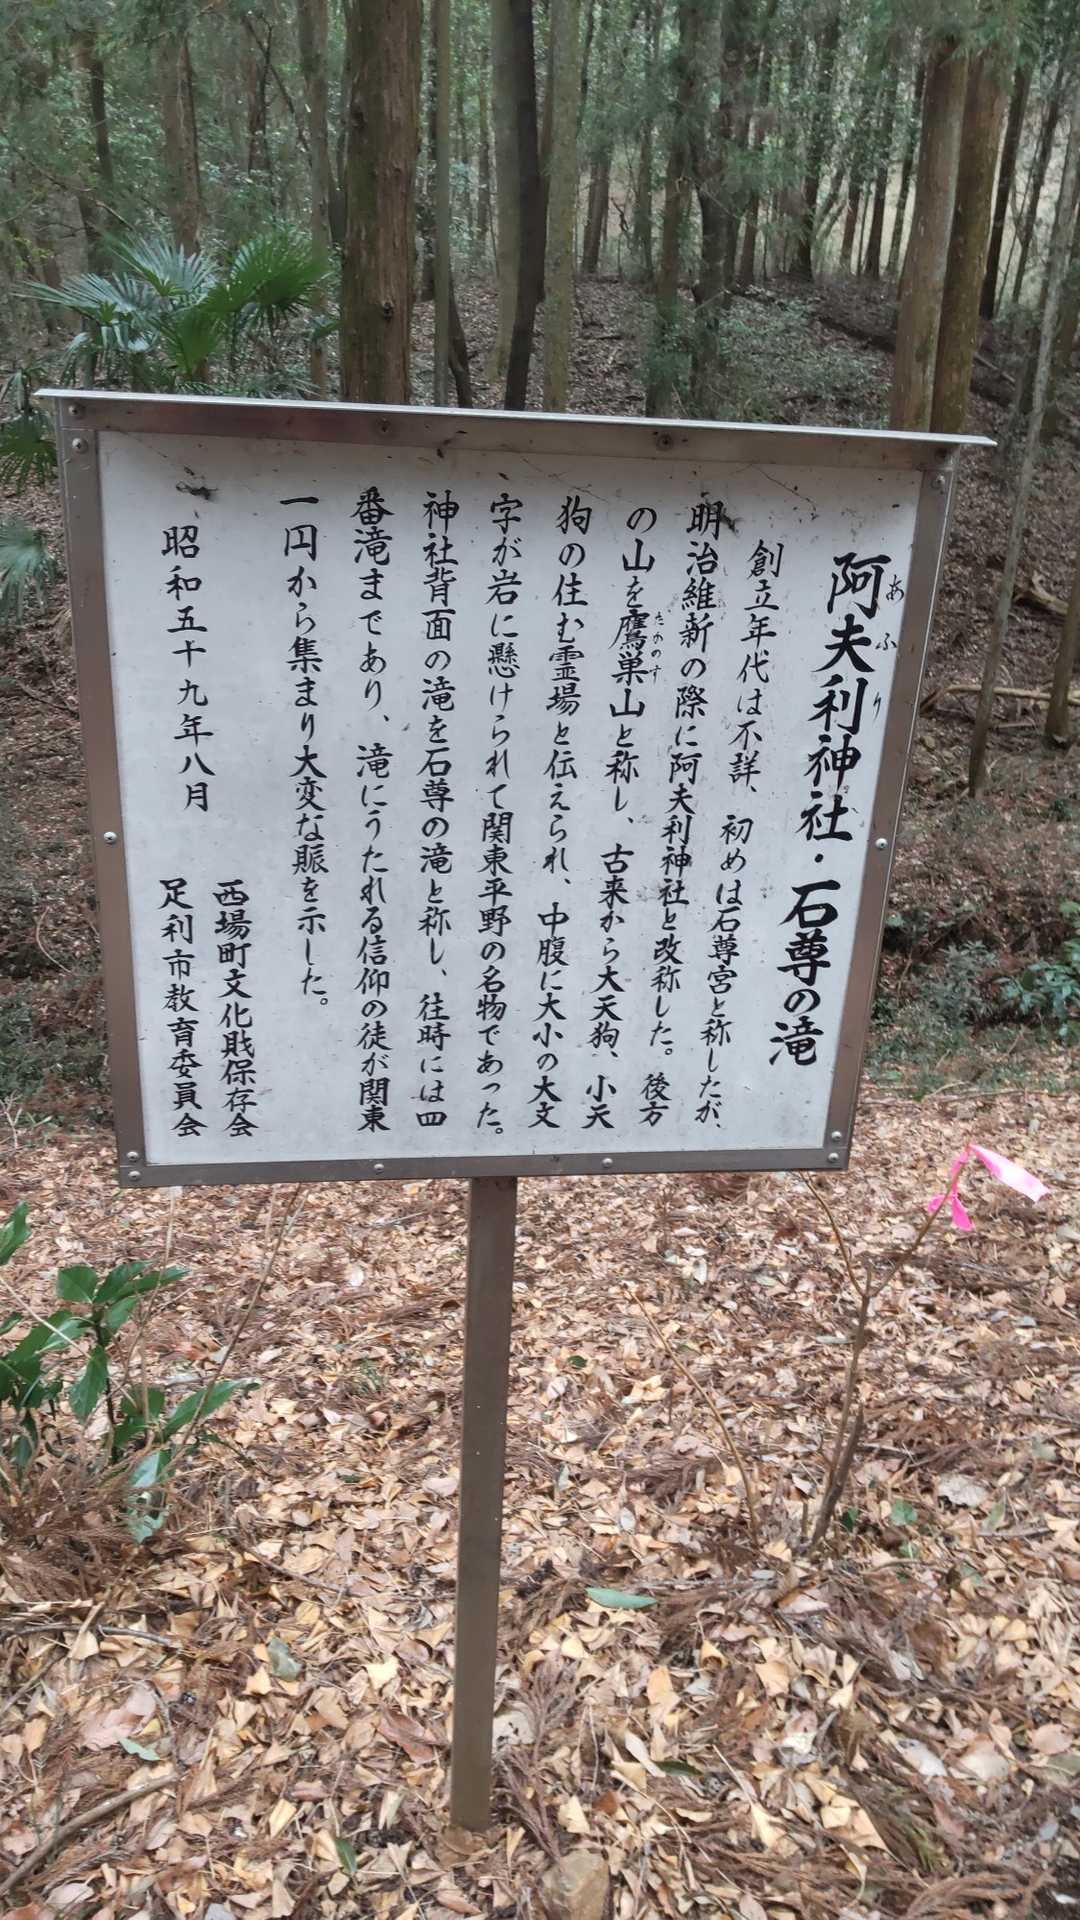 阿夫利神社・石尊の滝
あふり
創立年代は不詳、初めは石尊宮と称したが、
明治維新の際に阿夫利神社と改称した。後方
の山を鷹巣山と称し、古来から大天狗、小天
たかのす
狗の住む霊場と伝えられ、中腹に大小の大文
字が岩に懸けられて関東平野の名物であった。
神社背面の滝を石尊の滝と称し、往時には四
番滝まであり、滝にうたれる信仰の徒が関東
一円から集まり大変な賑を示した。
昭和五十九年八月
西場町文化財保存会
足利市教育委員会